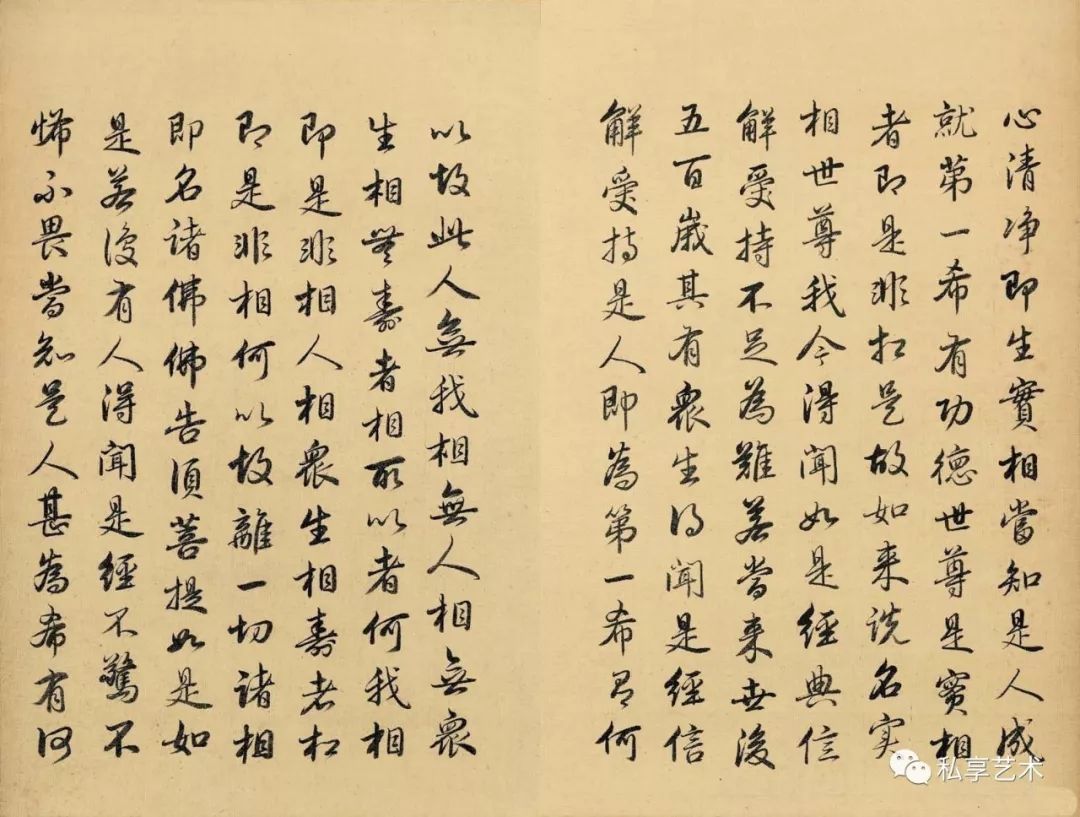 心清净即生實相當知是人成
就第一希有功德世尊是實相
者即是非相是故如来说名实
相世尊我今得聞如是經典信
解受持不足為難若當来世後
五百歲其有衆生得聞是經信
解受持是人即為第一希有何
以故此人無我相無人相無衆
生相無壽者相所以者何我相
即是非相人相衆生相壽者相
即是非相何以故離一切諸相
即名諸佛佛告須菩提如是如
是若復有人得聞是經不驚不
怖不畏當知是人甚為希有何
私享艺术